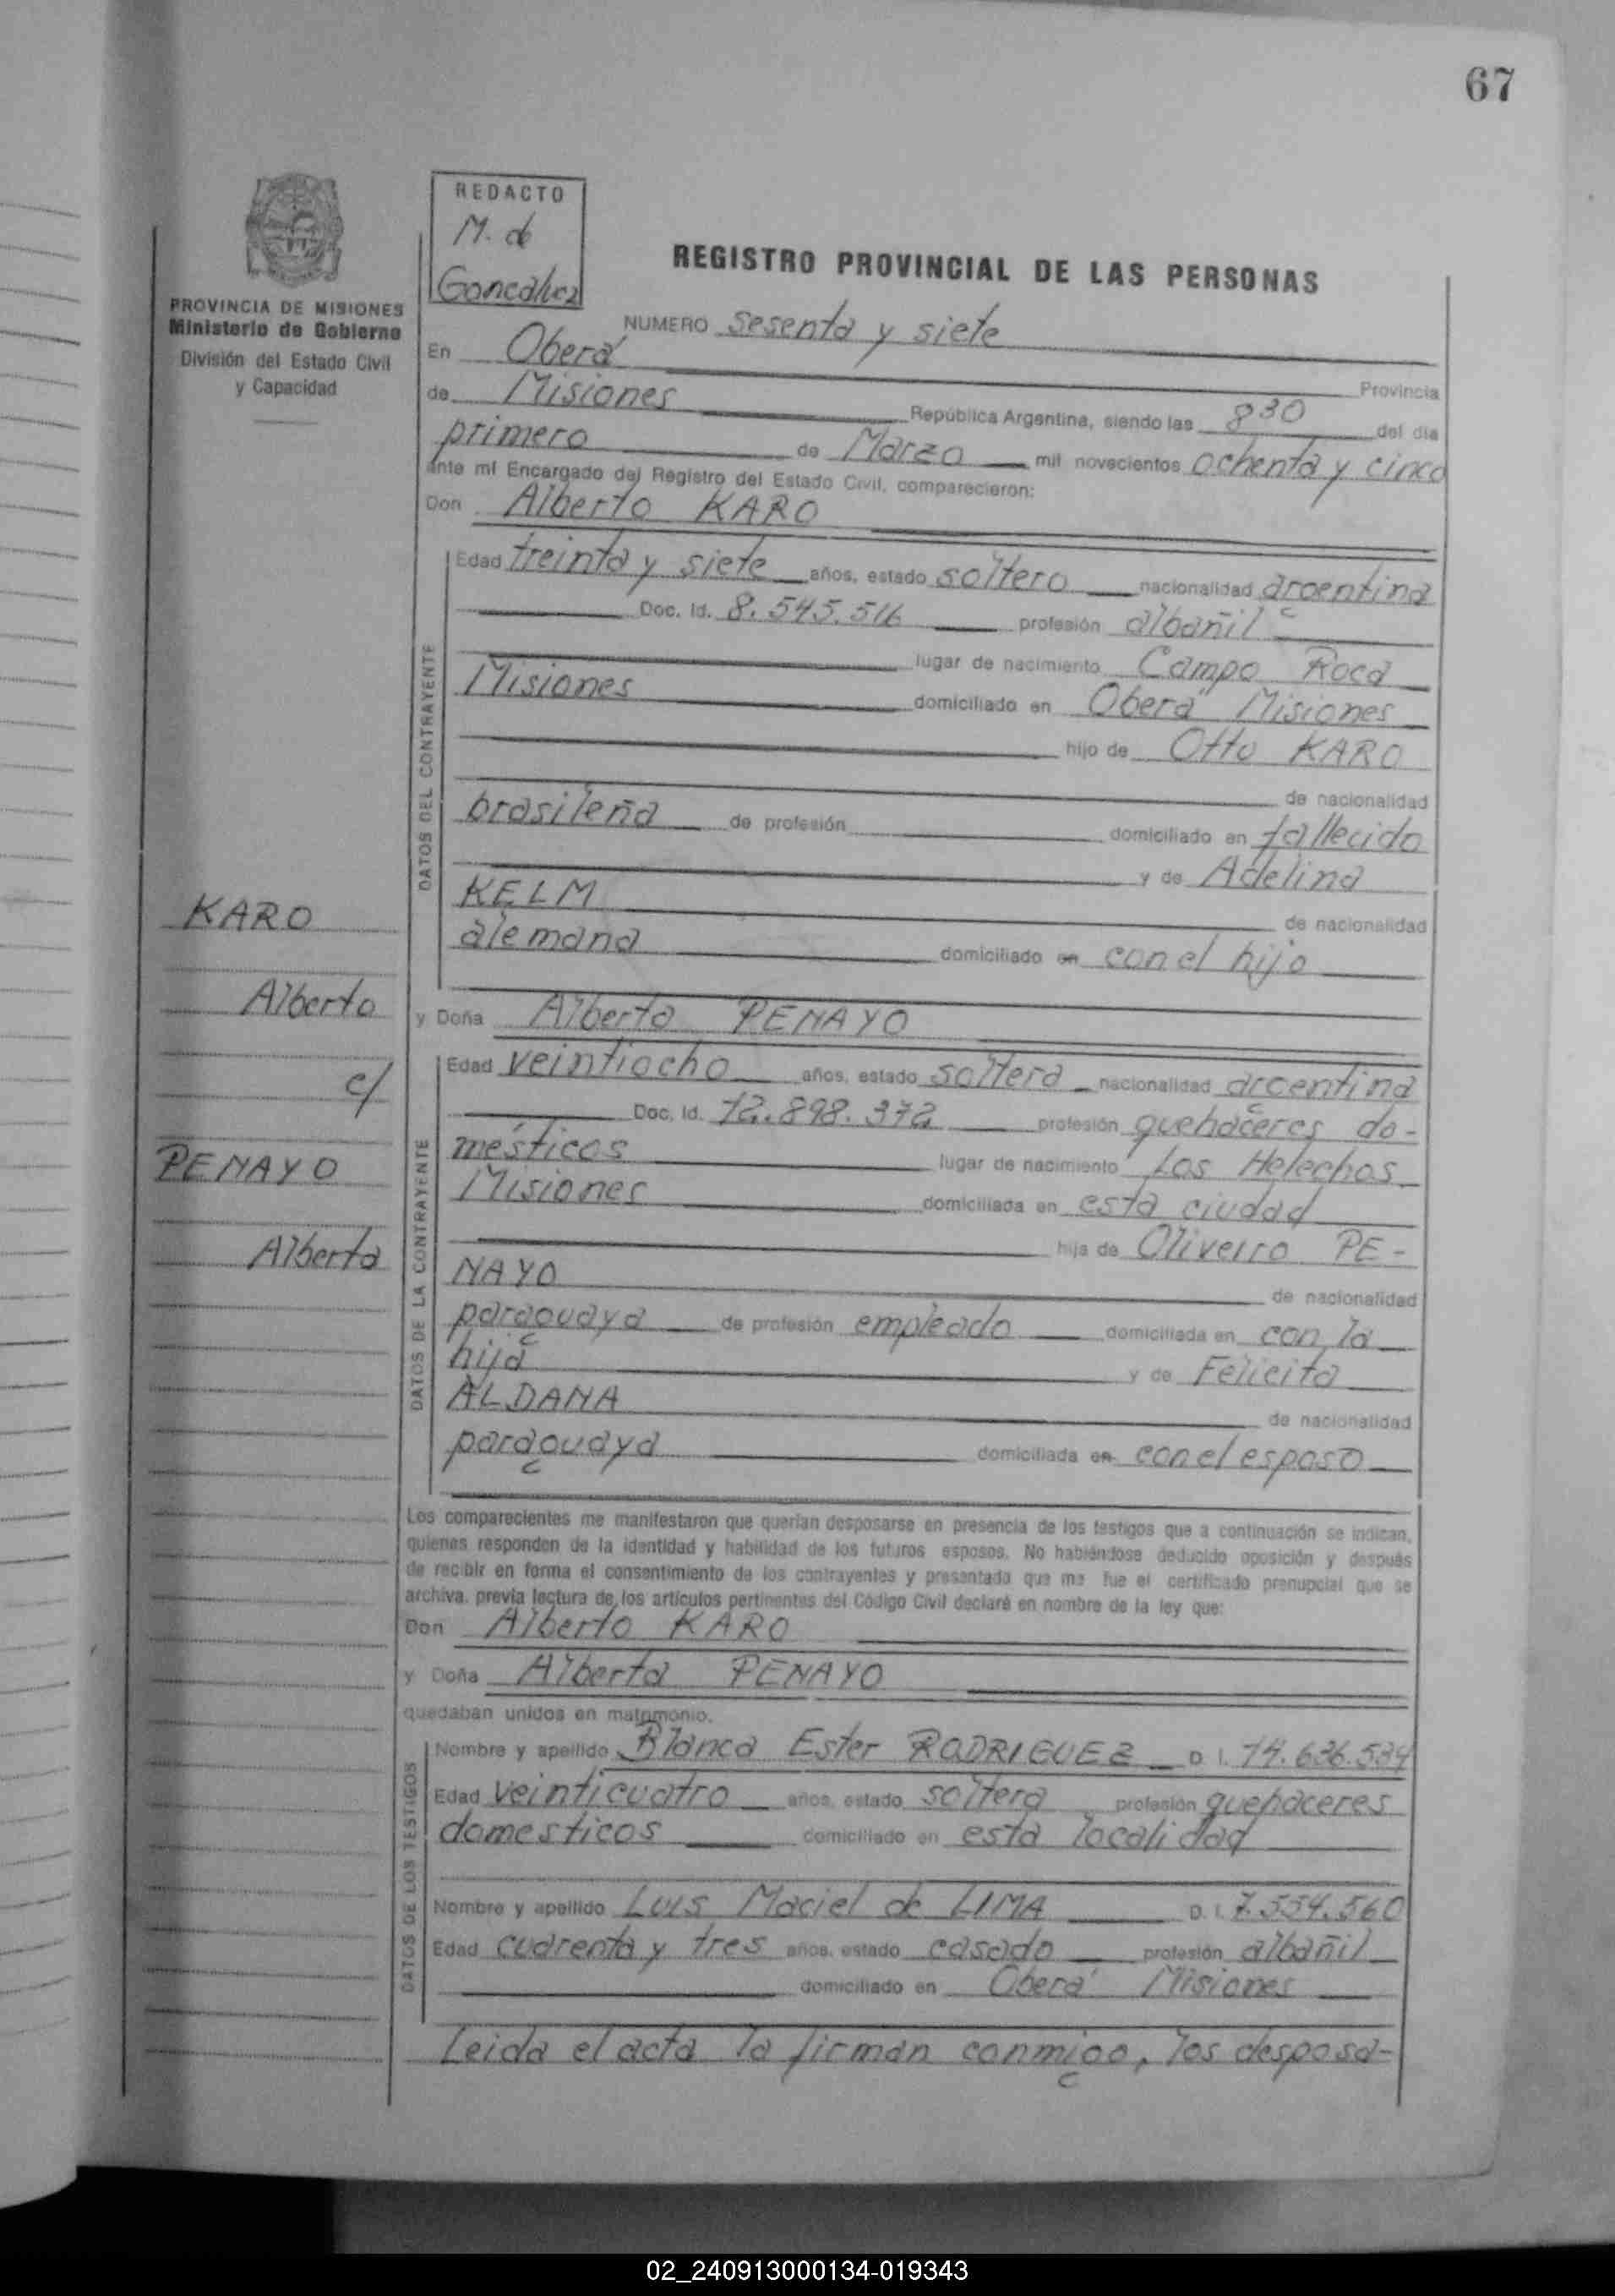 67
REDACTO
M. de
Goncalvez
REGISTRO PROVINCIAL DE LAS PERSONAS
PROVINCIA DE MISIONES
Ministerio de Gobierno
División del Estado Civil
y Capacidad
NUMERO sesenta y siete
En Oberá Provincia
de Misiones República Argentina, siendo las 8 30 del día
primero de Marzo mil novecientos ochenta y cinco
ante mí Encargado del Registro del Estado Civil, comparecieron:
Don Alberto KARO
DATOS DEL CONTRAYENTE
Edad treinta y siete años, estado soltero nacionalidad argentina
Doc. Id. 8.545.516 profesión albañil
lugar de nacimiento Campo Roca
Misiones domiciliado en Oberá Misiones
hijo de Otto KARO
de nacionalidad
brasileña de profesión domiciliado en fallecido
y de Adelina
KELM de nacionalidad
alemana domiciliado en con el hijo
KARO
Alberto
c/
PENAYO
Alberta
y Doña Alberta PENAYO
DATOS DE LA CONTRAYENTE
Edad veintiocho años, estado soltera nacionalidad argentina
Doc. Id. 12.898.372 profesión quehaceres do-
mésticos lugar de nacimiento Los Helechos
Misiones domiciliada en esta ciudad
hija de Oliveiro PE-
NAYO de nacionalidad
paraguaya de profesión empleado domiciliada en con la
hija y de Felicita
ALDANA de nacionalidad
paraguaya domiciliada en con el esposo
Los comparecientes me manifestaron que querían desposarse en presencia de los testigos que a continuación se indican,
quienes responden de la identidad y habilidad de los futuros esposos. No habiéndose deducido oposición y después
de recibir en forma el consentimiento de los contrayentes y presentado que me fue el certificado prenupcial que se
archiva, previa lectura de los artículos pertinentes del Código Civil declaré en nombre de la ley que:
Don Alberto KARO
y Doña Alberta PENAYO
quedaban unidos en matrimonio.
DATOS DE LOS TESTIGOS
Nombre y apellido Blanca Ester RODRIGUEZ D. I. 14.636.534
Edad veinticuatro años, estado soltera profesión quehaceres
domesticos domiciliado en esta localidad
Nombre y apellido Luis Maciel de LIMA D. I. 7.554.560
Edad cuarenta y tres años, estado casado profesión albañil
domiciliado en Oberá Misiones
Leida el acta la firman conmigo, los desposa-
02_240913000134-019343